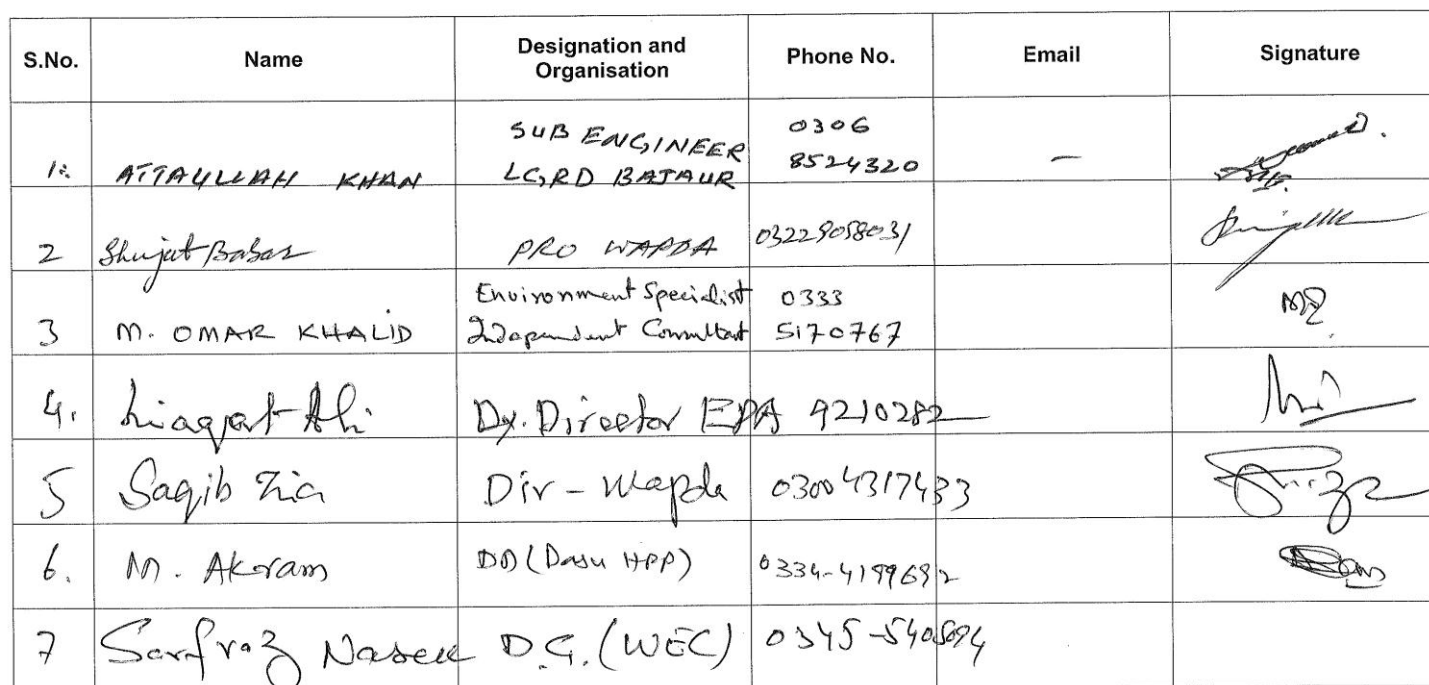 S.No. Name Designation and Organisation Phone No. Email Signature
1. ATTAULLAH KHAN SUB ENGINEER LG,RD BAJAUR 0306 8524320 —
2 Shujat Babar PRO WAPDA 03229058031
3 M. OMAR KHALID Environment Specialist Independent Consultant 0333 5170767
4. Liaqat Ali Dy. Director EPA 9210282
5 Saqib Zia Dir - Wapda 03004317433
6. M. Akram DD (Dasu HPP) 0334-4199692
7 Sarfraz D.G. (WEC) 0345-5405694